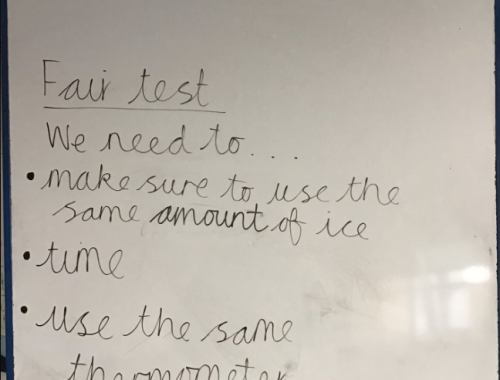 Fair test
We need to...
• make sure to use the
same amount of ice
• time
• use the same
thermometer